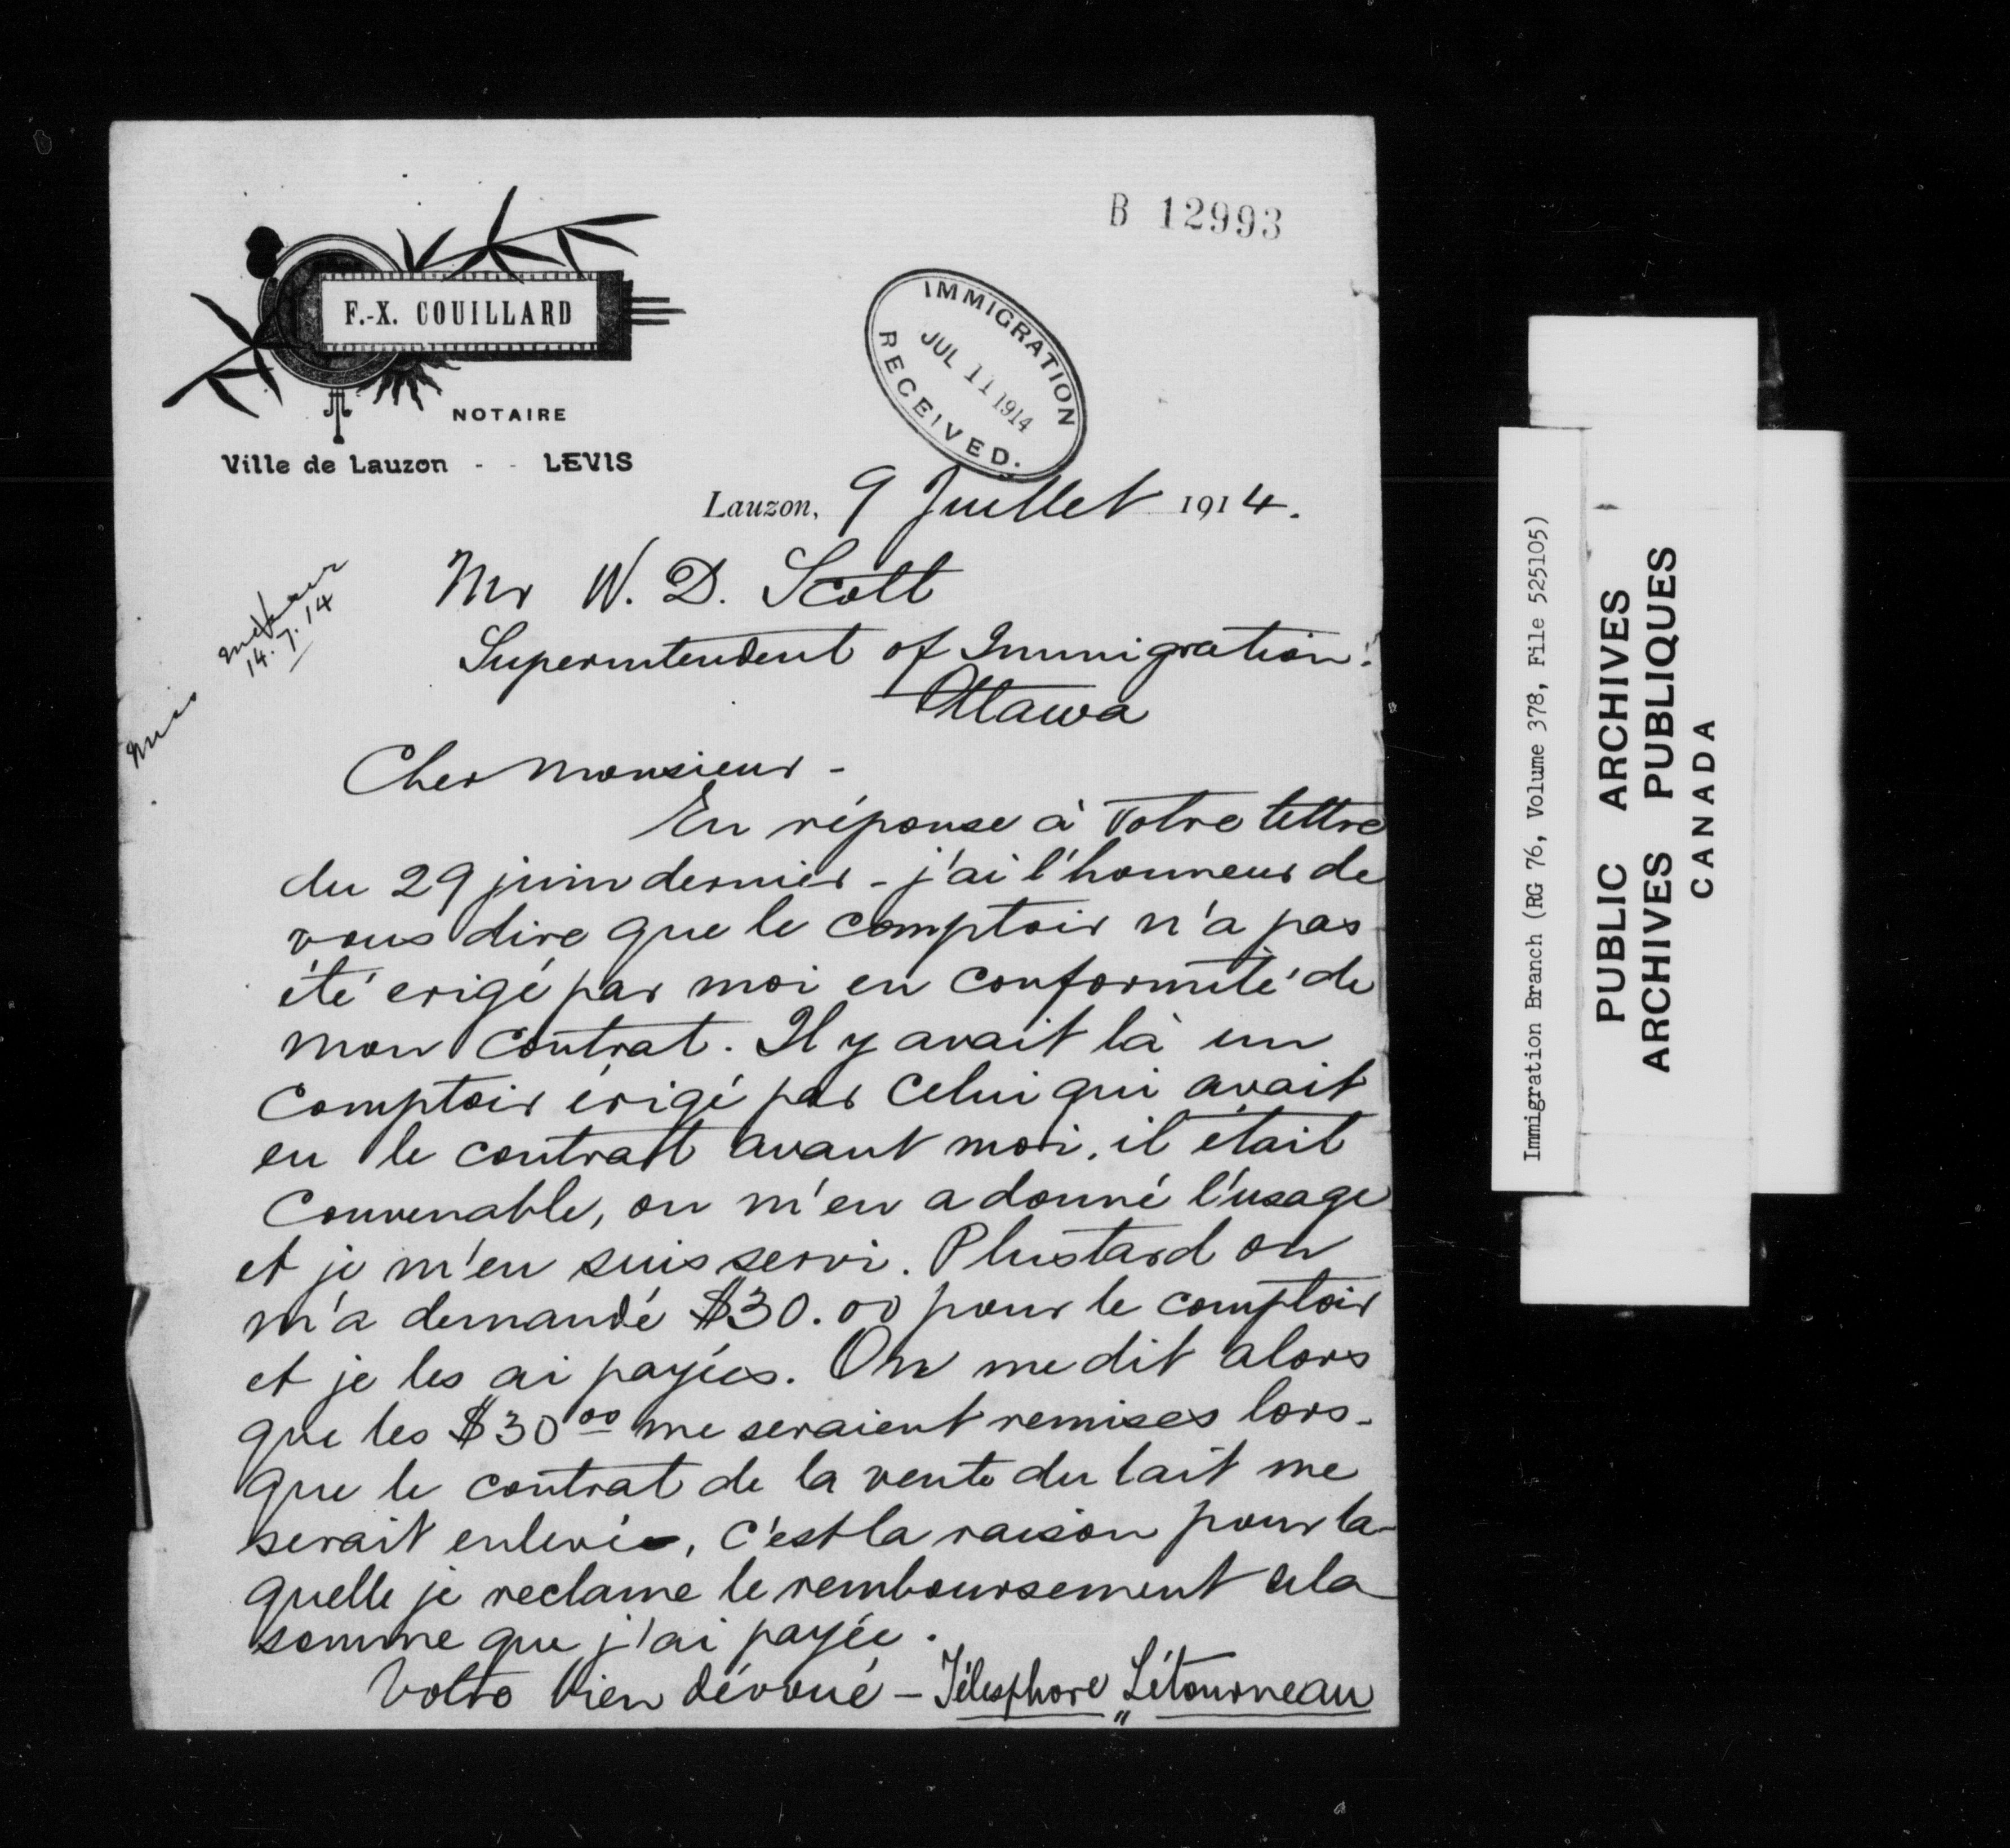 B 12993
F.-X. COUILLARD
NOTAIRE
Ville de Lauzon - - LEVIS
IMMIGRATION
JUL 11 1914
RECEIVED.
Lauzon, 9 Juillet 1914.
14.7.14
Mr W. D. Scott
Superintendent of Immigration.
Ottawa
Cher Monsieur -
En réponse à votre lettre
du 29 juin dernier - j'ai l'honneur de
vous dire que le comptoir n'a pas
été erigé par moi en conformité de
mon contrat. Il y avait là un
comptoir érigé par celui qui avait
eu le contratt avant moi, il était
convenable, on m'en a donné l'usage
et je m'en suis servi. Plustard on
m'a demandé $30.00 pour le comptoir
et je les ai payées. On me dit alors
que les $30 00 me seraient remises lors-
que le contrat de la vente du lait me
serait enlevé, c'est la raison pour la-
quelle je reclame le remboursement de la
somme que j'ai payée.
Votre bien dévoué - Télesphore Létourneau
Immigration Branch (RG 76, Volume 378, File 525105)
PUBLIC ARCHIVES
ARCHIVES PUBLIQUES
CANADA